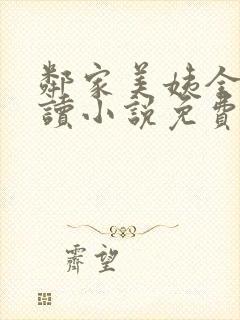 鄰家美姨全
讀小說免費
霽望